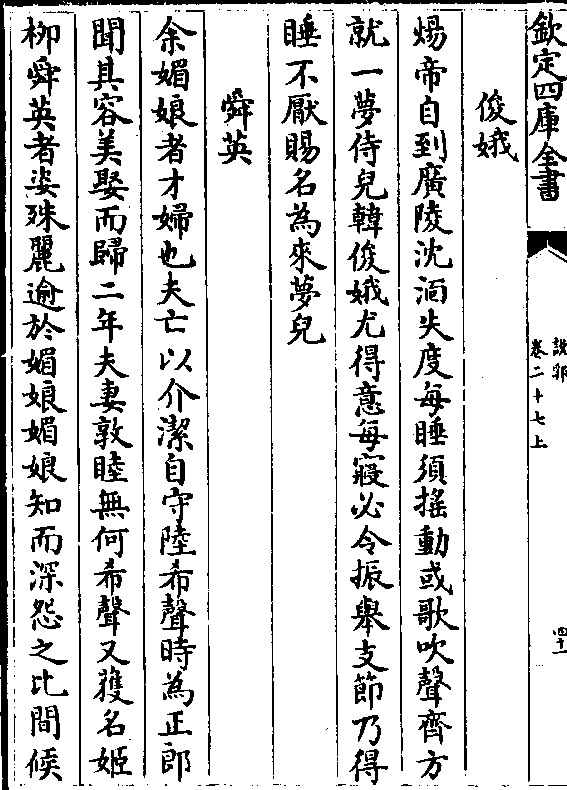 欽定四庫全書
說郛
卷二十七上
四十一
俊娥
煬帝自到廣陵沈湎失度每睡須摇動或歌吹聲齊方
就一夢侍兒韓俊娥尤得意每寢必令振舉支節乃得
睡不厭賜名為來夢兒
舜英
余媚娘者才婦也夫亡以介潔自守陸希聲時為正郎
聞其容美娶而歸二年夫妻敦睦無何希聲又獲名姬
柳舜英者姿殊麗逾於媚娘媚娘知而深怨之比間候